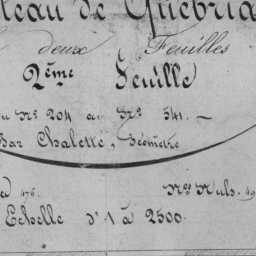 de Quebria
deux Feuilles
2ème Feuille
Nº 204 au Nº 541.
Par Chalette, Géomètre
Echelle d'1 à 2500.